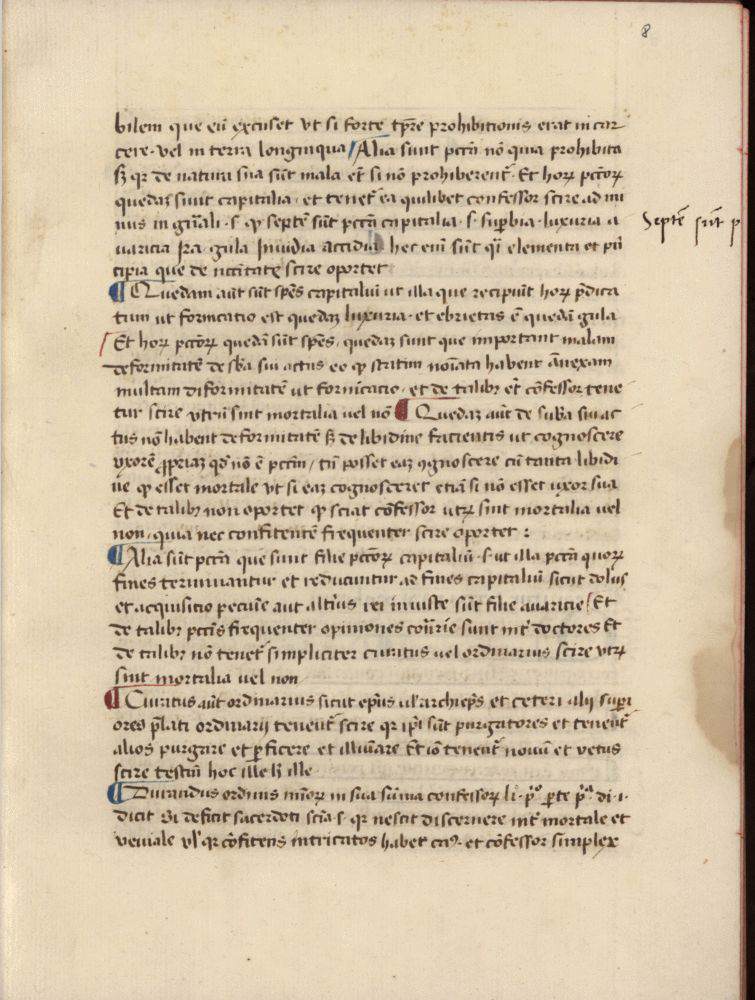 8
bilem que eū excuset vt si forte tp̄re prohibitionis erat in car
cere · vel in terra longinqua Alia sunt pctā nō quia prohibita
sꝫ qr de natura sua sūt mala et̄ si nō prohiberent᷑ · Et horꝝ pctōrꝝ
quedaꝫ sunt capitalia · et tenet᷑ ea quilibet confessor scire ad mi
nus in gn̄ali · s · ꝙ septē sūt pctā capitalia · s · suꝑbia · luxuria a
uaricia Ira · gula Inuidia accidia hec eni᷑ sūt qi᷑ elementa et pn̄
cipia que de nccītate scire oportet
Quedam aūt sūt spēs capitaliū ut illa que recipiūt horꝝ p̄dica
tum ut fornicatio est quedaꝫ luxuria · et ebrietas ē quedā gula
Et horꝝ pctōrꝝ quedā sūt spēs, quedaꝫ sunt que important malam
deformitatē de sb̄a sui actus eo ꝙ statim noīata habent ānexam
multam difformitatē ut fornicacio · et de talibꝫ et̄ cōfessor tene
tur scire vtrū sint mortalia uel nō Quedaꝫ aūt de sub̄a sui ac
tus nō habent deformitatē sꝫ de libidine facientis ut cognoscere
vxorē ꝓpriaꝫ qd̄ nō ē pctm̄, tn̄ posset eaꝫ ꝯgnoscere cū tanta libidi
ne ꝙ esset mortale vt si eaꝫ cognosceret etiā si nō esset uxor sua
Et de talibꝫ non oportet ꝙ sciat cōfessor utꝝ sint mortalia uel
non, quia nec confitentē frequenter scire oportet :
Alia sūt pctā que sunt filie pctōrꝝ capitaliū · s · ut illa pctā quorꝝ
fines terminantur et reducuntur ad fines capitaliū sicut dolus
et acquisicio pecunie aut alti᷑us rei iniuste sūt filie auaricie Et
de talibꝫ pctīs frequenter opiniones cōn̄rie sunt int᷑ doctores Et
de talibꝫ nō tenet᷑ simpliciter curatus uel ordinarius scire utrꝝ
sint mortalia uel non
Curatus aūt ordinarius sicut ep̄us ul̄ archiep̄s et ceteri alij supi᷑
ores p̄lati ordinarij tenent᷑ scire qr ip̄i sūt purgatores et tenent᷑
alios purgare et ꝑficere et illuīare Et iō tenent᷑ nouū et vetus
scire testm̄ hoc ille hꝫ ille
Durandus ordinis mīorꝝ in sua sūma confessorꝝ li · pº · ꝑte pª · di · i ·
dicit Si deficit sacerdoti scīa · s · qr nescit discernere int᷑ mortale et
veniale ul̄ qr cōfitens intricatos habet caꝰ · et cōfessor simplex
Septē sūt p